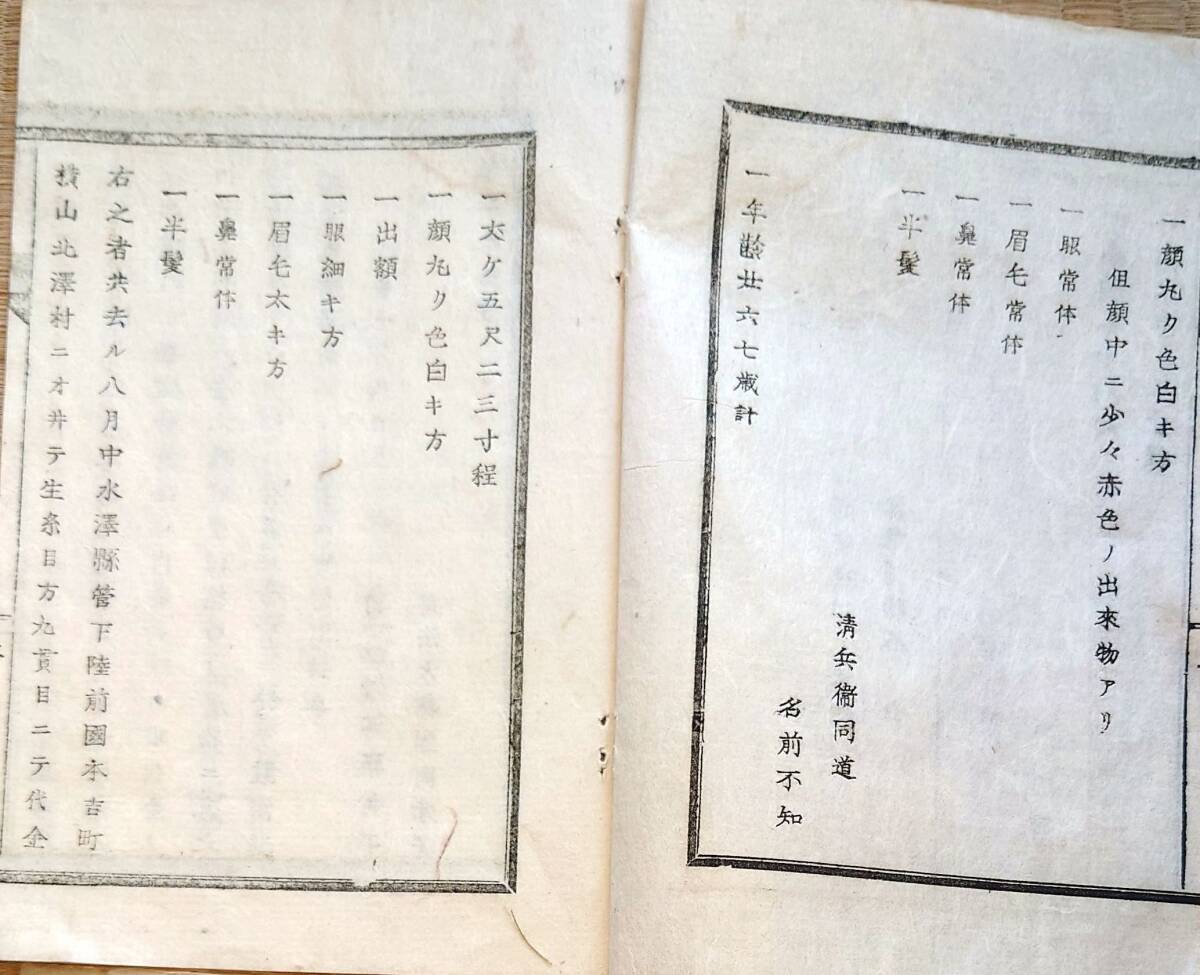 一顔丸ク色白キ方
但顔中ニ少々赤色ノ出來物アリ
一眼常体
一眉毛常体
一鼻常体
一半髪
清兵衞同道
名前不知
一年齢廿六七歳計
一丈ケ五尺二三寸程
一顔丸リ色白キ方
一出額
一眼細キ方
一眉毛太キ方
一鼻常体
一半髪
右之者共去ル八月中水澤縣管下陸前國本吉町
横山北澤村ニオ井テ生糸目方九貫目ニテ代金